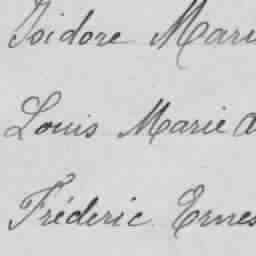 Isidore Mari
Louis Marie A
Fréderic Ernes